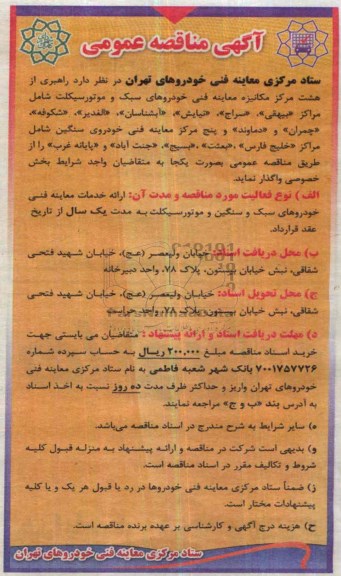 آگهی مناقصه عمومی
ستاد مرکزی معاینه فنی خودروهای تهران در نظر دارد راهبری از
هشت مرکز مکانیزه معاینه فنی خودروهای سبک و موتورسیکلت شامل
مراکز «بیهقی»، «سراج»، «نیایش»، «آبشناسان»، «الغدیر»، «شکوفه»،
«چمران» و «دماوند» و پنج مرکز معاینه فنی خودروی سنگین شامل
مراکز «خلیج فارس»، «بعثت»، «بسیج»، «جنت آباد» و «پایانه غرب» را از
طریق مناقصه عمومی بصورت یکجا به متقاضیان واجد شرایط بخش
خصوصی واگذار نماید.
الف) نوع فعالیت مورد مناقصه و مدت آن: ارائه خدمات معاینه فنی
خودروهای سبک و سنگین و موتورسیکلت به مدت یک سال از تاریخ
عقد قرارداد.
ب) محل دریافت اسناد: خیابان ولیعصر (عج)، خیابان شهید فتحی
شقاقی، نبش خیابان بیستون، پلاک ۷۸، واحد دبیرخانه
ج) محل تحویل اسناد: خیابان ولیعصر (عج)، خیابان شهید فتحی
شقاقی، نبش خیابان بیستون، پلاک ۷۸، واحد حراست
د) مهلت دریافت اسناد و ارائه پیشنهاد: متقاضیان می بایستی جهت
خرید اسناد مناقصه مبلغ ۲۰۰,۰۰۰ ریال به حساب سپرده شماره
۷۰۰۱۷۵۷۷۲۶ بانک شهر شعبه فاطمی به نام ستاد مرکزی معاینه فنی
خودروهای تهران واریز و حداکثر ظرف مدت ده روز نسبت به اخذ اسناد
به آدرس بند «ب و ج» مراجعه نمایند.
ه) سایر شرایط به شرح مندرج در اسناد مناقصه می‌باشد.
و) بدیهی است شرکت در مناقصه و ارائه پیشنهاد به منزله قبول کلیه
شروط و تکالیف مقرر در اسناد مناقصه است.
ز) ضمناً ستاد مرکزی معاینه فنی خودروها در رد یا قبول هر یک و یا کلیه
پیشنهادات مختار است.
ح) هزینه درج آگهی و کارشناسی بر عهده برنده مناقصه است.
ستاد مرکزی معاینه فنی خودروهای تهران